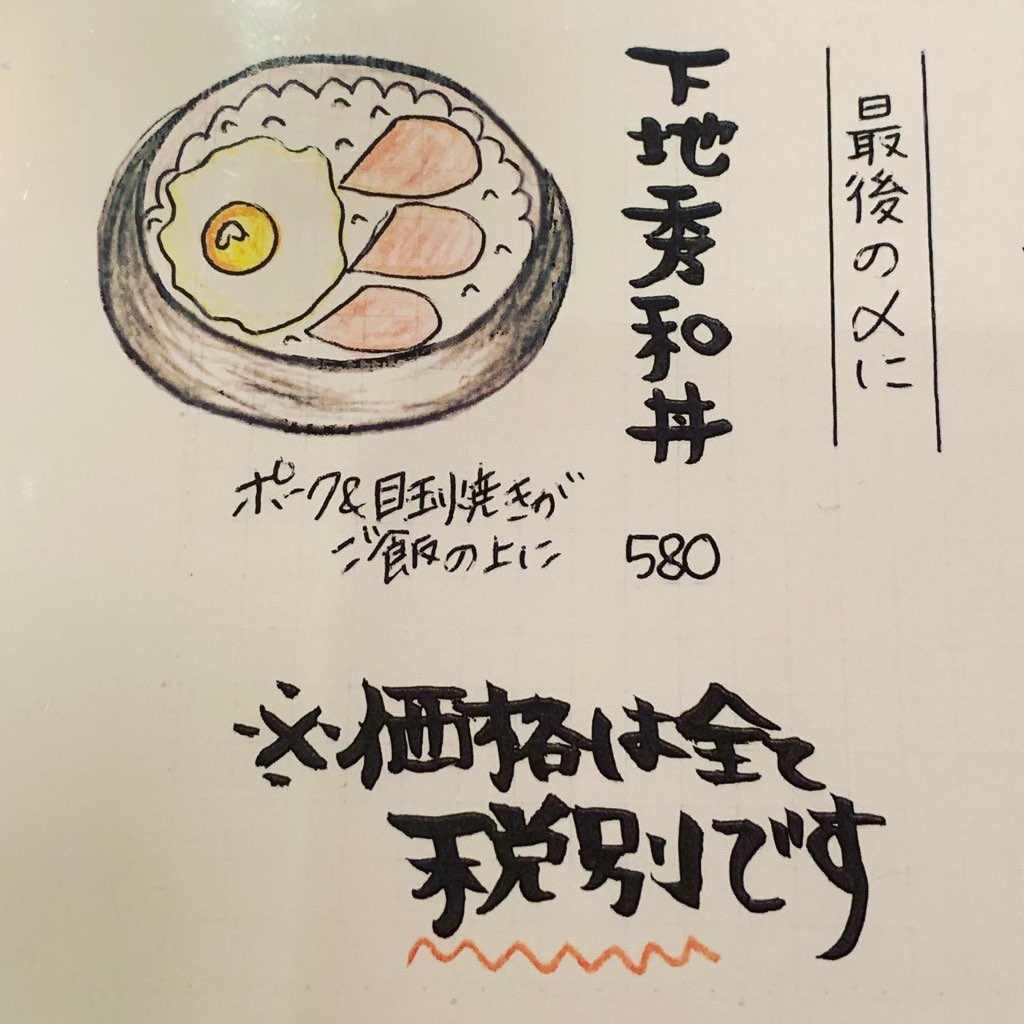 最後の〆に
下地秀和丼
580
ポーク&目玉焼きが
ご飯の上に
※価格は全て
税別です